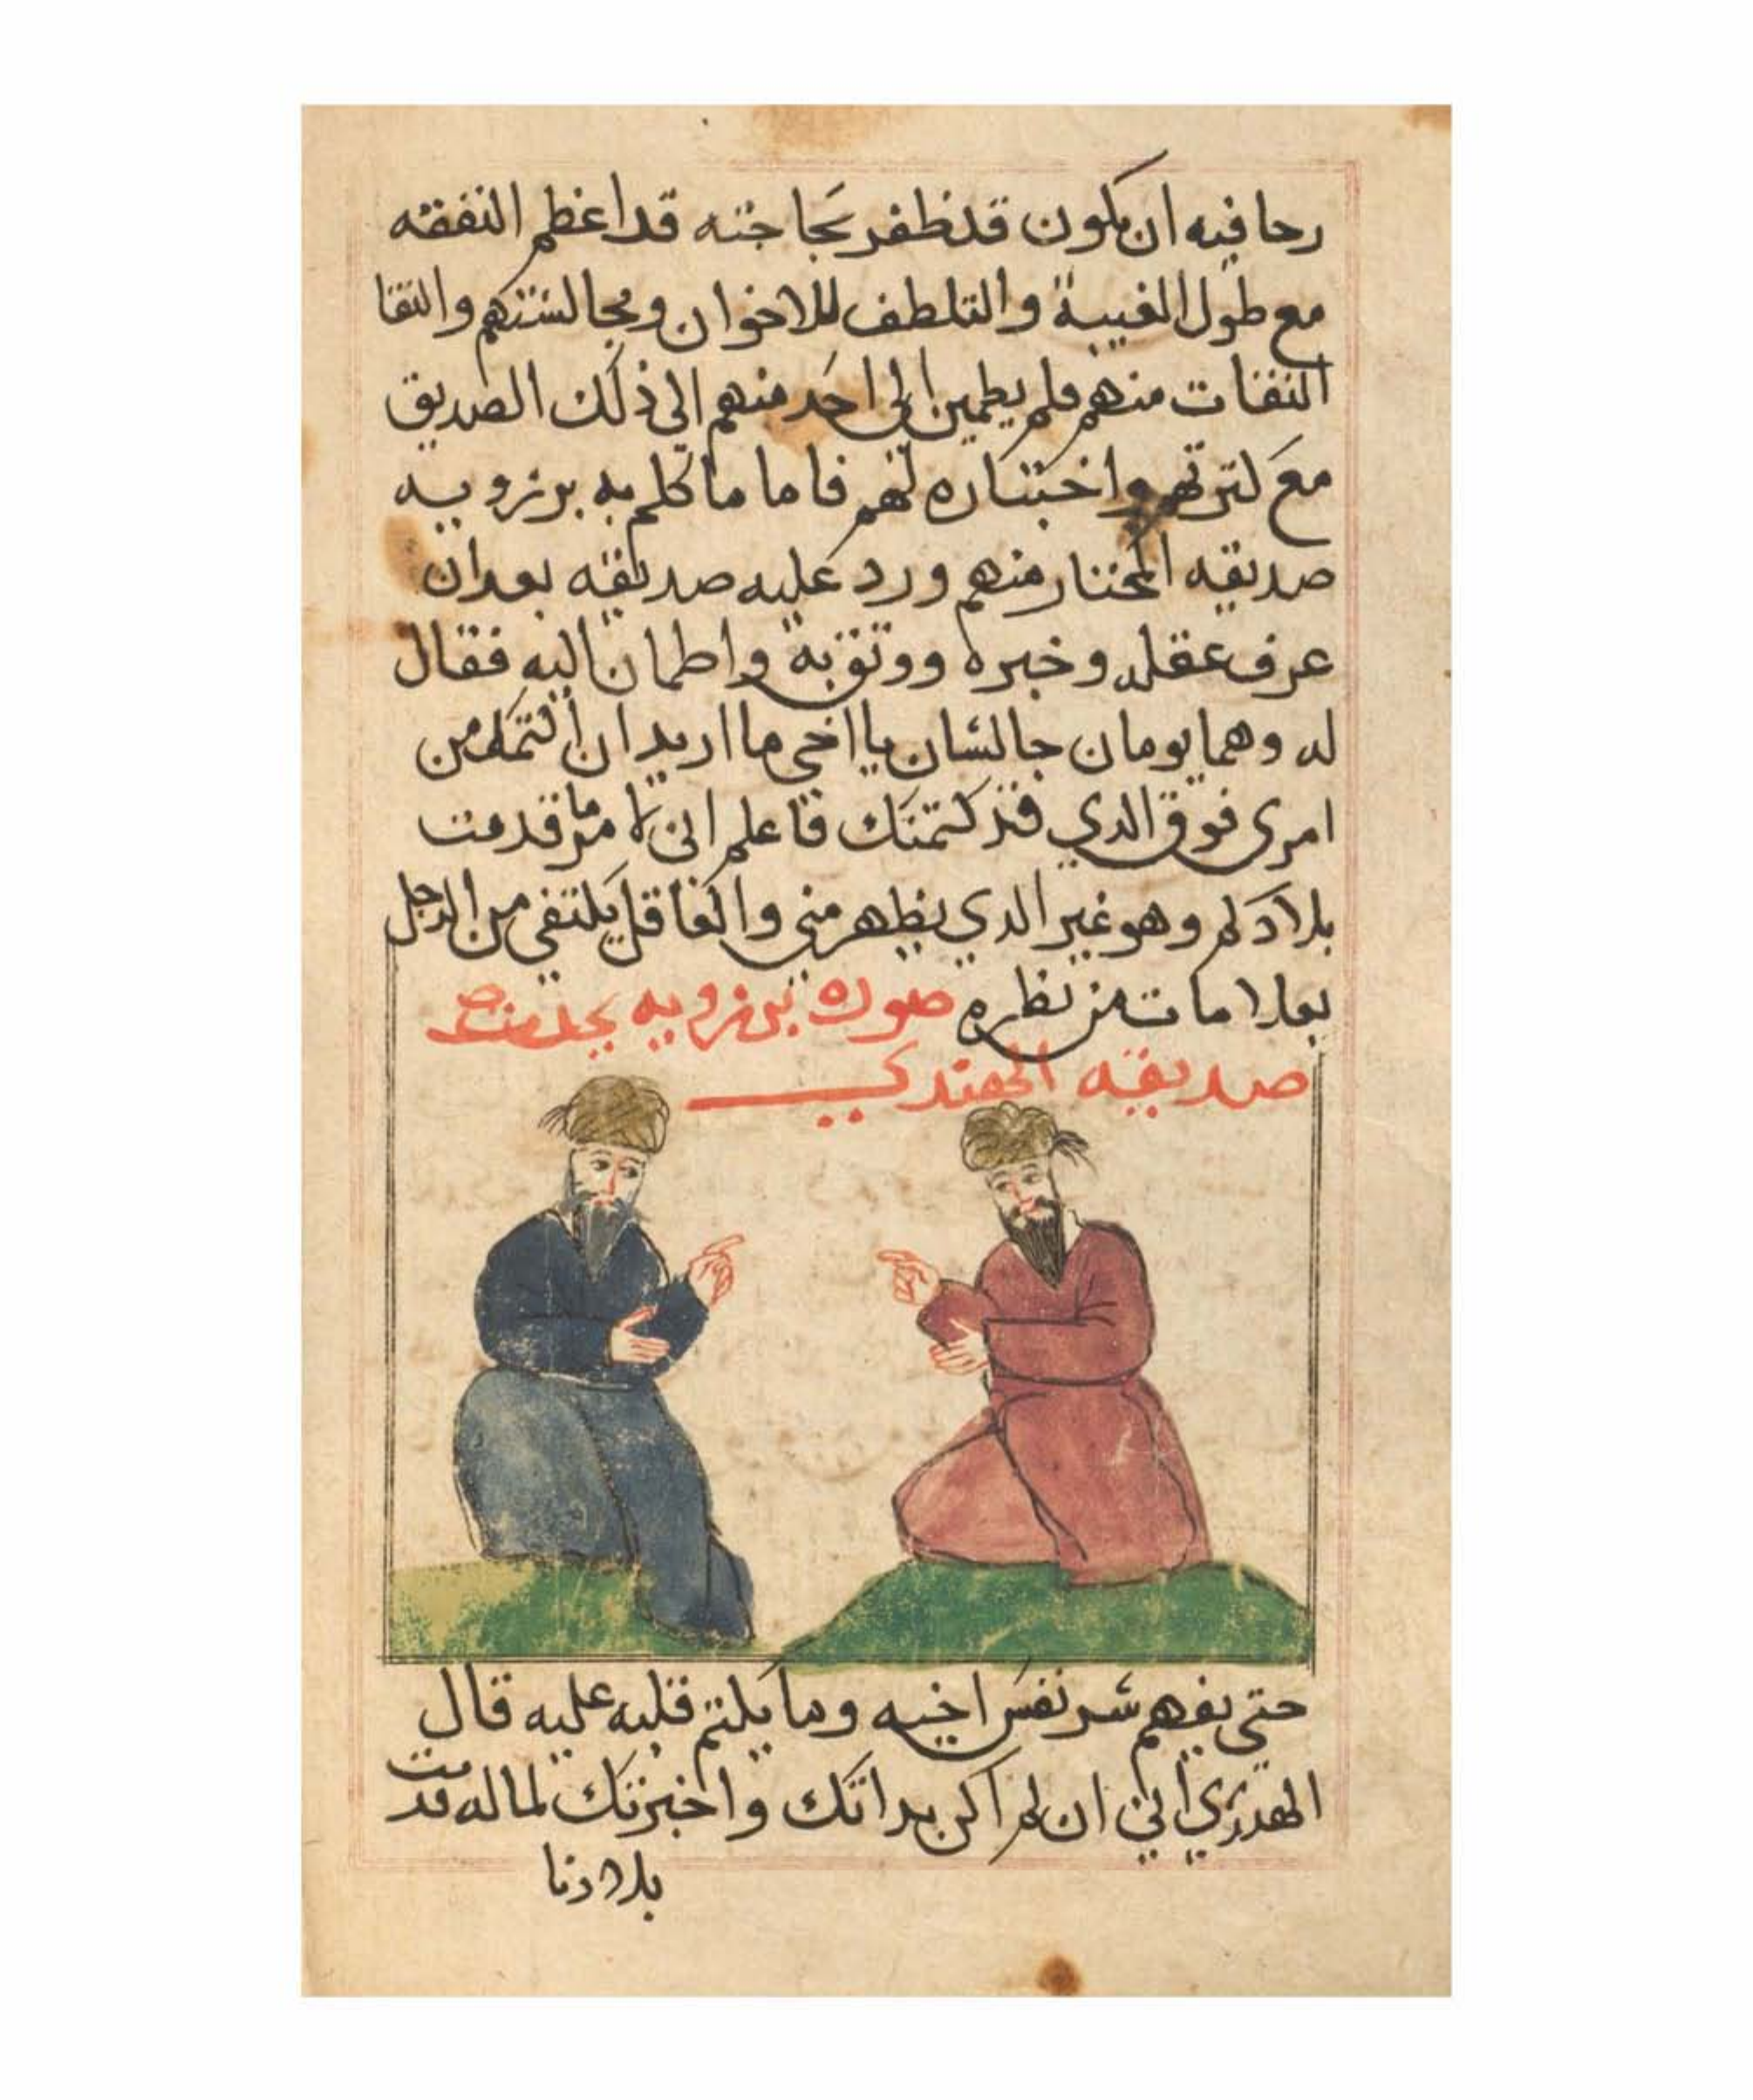 رجا فيه ان يكون قد ظفر بحاجته قد اعظم النفقه
مع طول الغيبة والتلطف للاخوان ومجالستهم والتقا
الثقات منهم فلم يطمين الى احد منهم الى ذلك الصديق
مع كثرتهم واختباره لهم فاما ما كلم به برزويه
صديقه المختار منهم ورد عليه صديقه بعد ان
عرف عقله وخبره ووثق به واطمان اليه فقال
له وهما يومان جالسان يا اخي ما اريد ان اكتمك من
امرى فوق الدي قد كتمتك فاعلم اني لامر ما قدمت
بلادكم وهو غير الدي يظهر مني والعاقل يكتفي من الرجل
بعلامات من نظره صوره برزويه يحدث
صديقه الهندي
حتى يفهم سر نفس اخيه وما يكتم قلبه عليه قال
الهندي اني ان لم اكن بداتك واخبرتك لما له قدمت
بلادنا